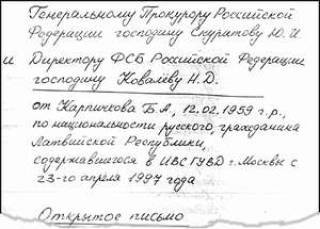 Генеральному Прокурору Российской
Федерации господину Скуратову Ю.И.
и Директору ФСБ Российской Федерации
господину Ковалёву Н.Д.
от Карпичкова Б.А., 12.02.1959 г.р.,
по национальности русского, гражданина
Латвийской Республики,
содержавшегося в ИВС ГУВД г. Москвы с
23-го апреля 1997 года
Открытое письмо